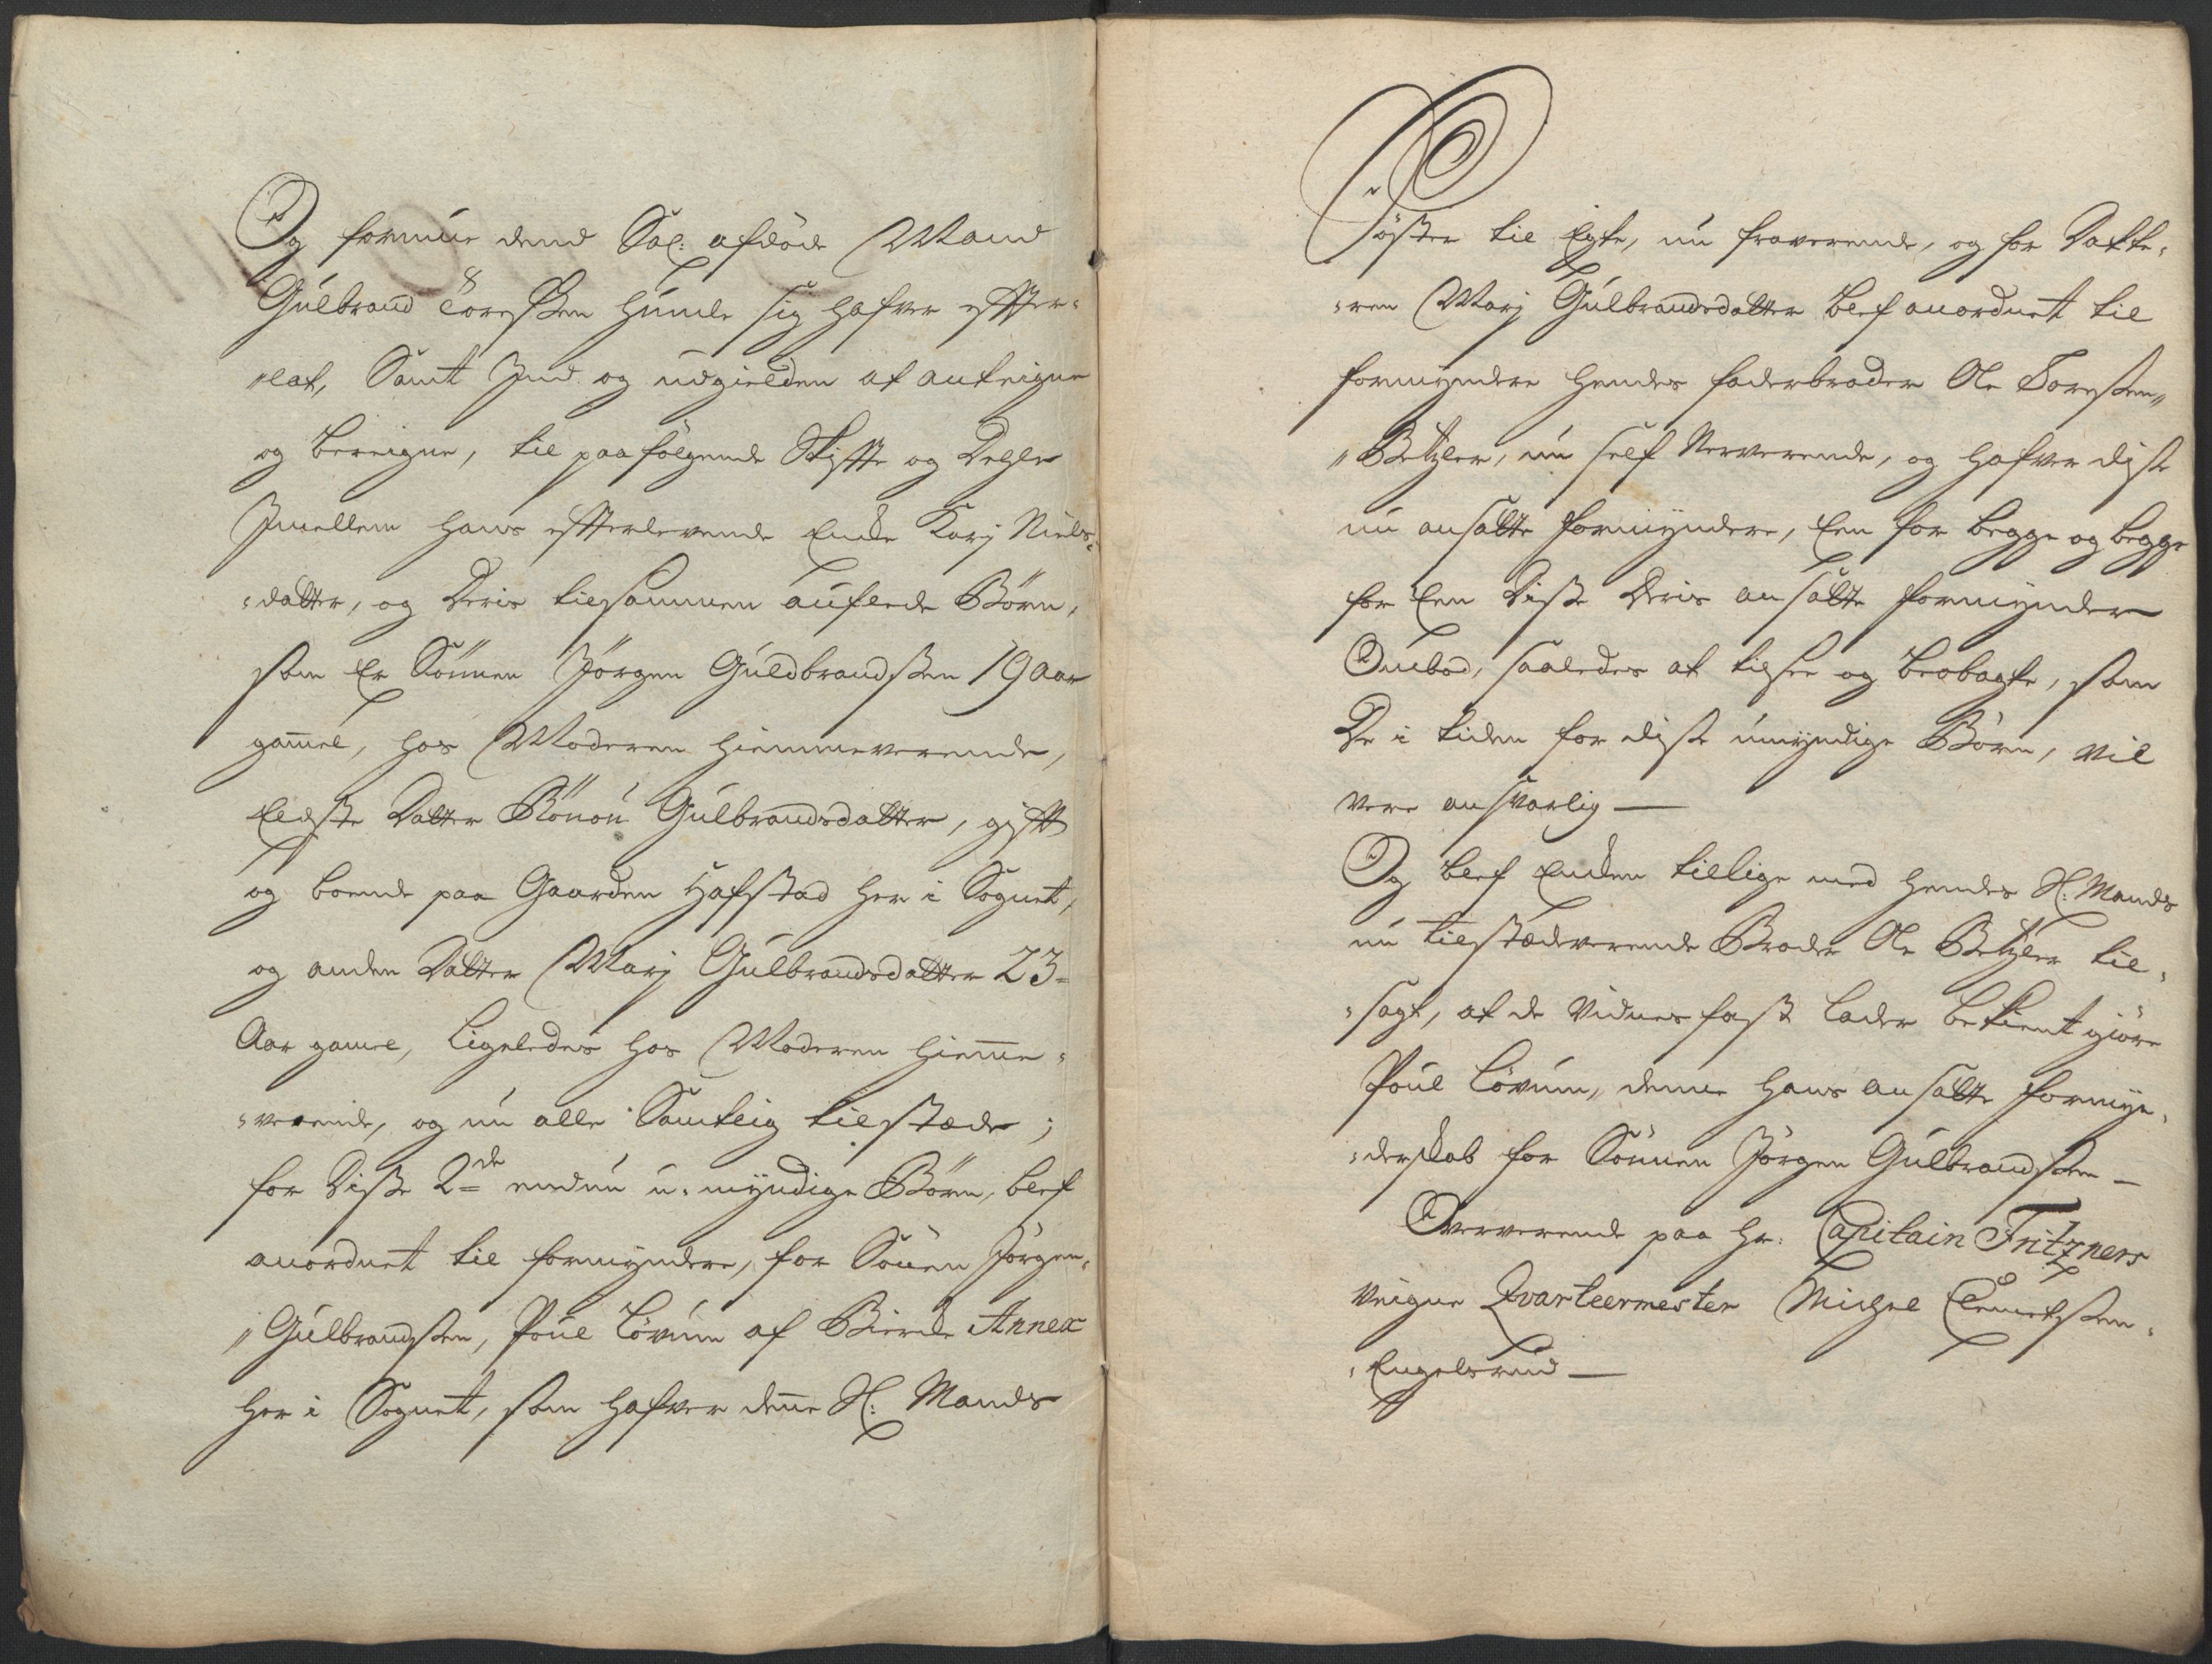 Og formue dend Sal: afdöde Mand
Gúlbrand Toresßen húnde sig hafver effter-
"lat, Samt Jnd og udgielden at anteigne
og bereigne, til paafölgende Skiffte og Dehle
Jmellem hans effterlevende Encke Karj Niels-
-datter, og Deris tilsammen auflede Börn,
som Er Sönnen Jörgen Gúldbrandsßen 19 Aar
gamel, hos Moderen hiemmeverende,
Eldste Datter Rönou Gúlbrandsdatter, gifft
og boende paa Gaarden Hafstad her i Sognet,
og anden Datter Marj Gúlbrandsdatter 23-
Aar gamel, Ligeledes hos Moderen hieme-
-verende, og nú alle Samtlig tilstæde;
for Disße 2de endnú u-myndige Börn, blef
anordnet til formyndere, for Sönen Jörgen-
"Gúlbrandsßen, Poúl Lövúm af Bierche Annex
her i Sognet, som hafver dene Sl: Mands
Söster til Egte, nú fraverende, og for Datte-
-ren Marj Gúlbrandsdatter blef anordnet til
formyndere hendes faderbroder Ole Toresßen"
"Betzler, nú self Nerverende, og hafver diße
nú ansatte formyndere, Een for begge og begge
for Een Disße Deris ansatte formynder
Ombod, saaledes at tilsee og beobagte, som
De i tiden for diße úmyndige Börn, vil
vere ansvarlig —
Og blef Encken tillige med hendes Sl: Mands
nú tilstædeverende Broder Ole Betzler til-
-sagt, at de vidnesfast lader bekient giöre
Poúl Lövúm, denne hans ansatte formyn-
-derskab for Sönnen Jörgen Gúlbrandsßen —
Oververende paa Hr: Capitain Fritzners
veigne Qvarteermester Michel Clemetsßen-
-Engelsrud —